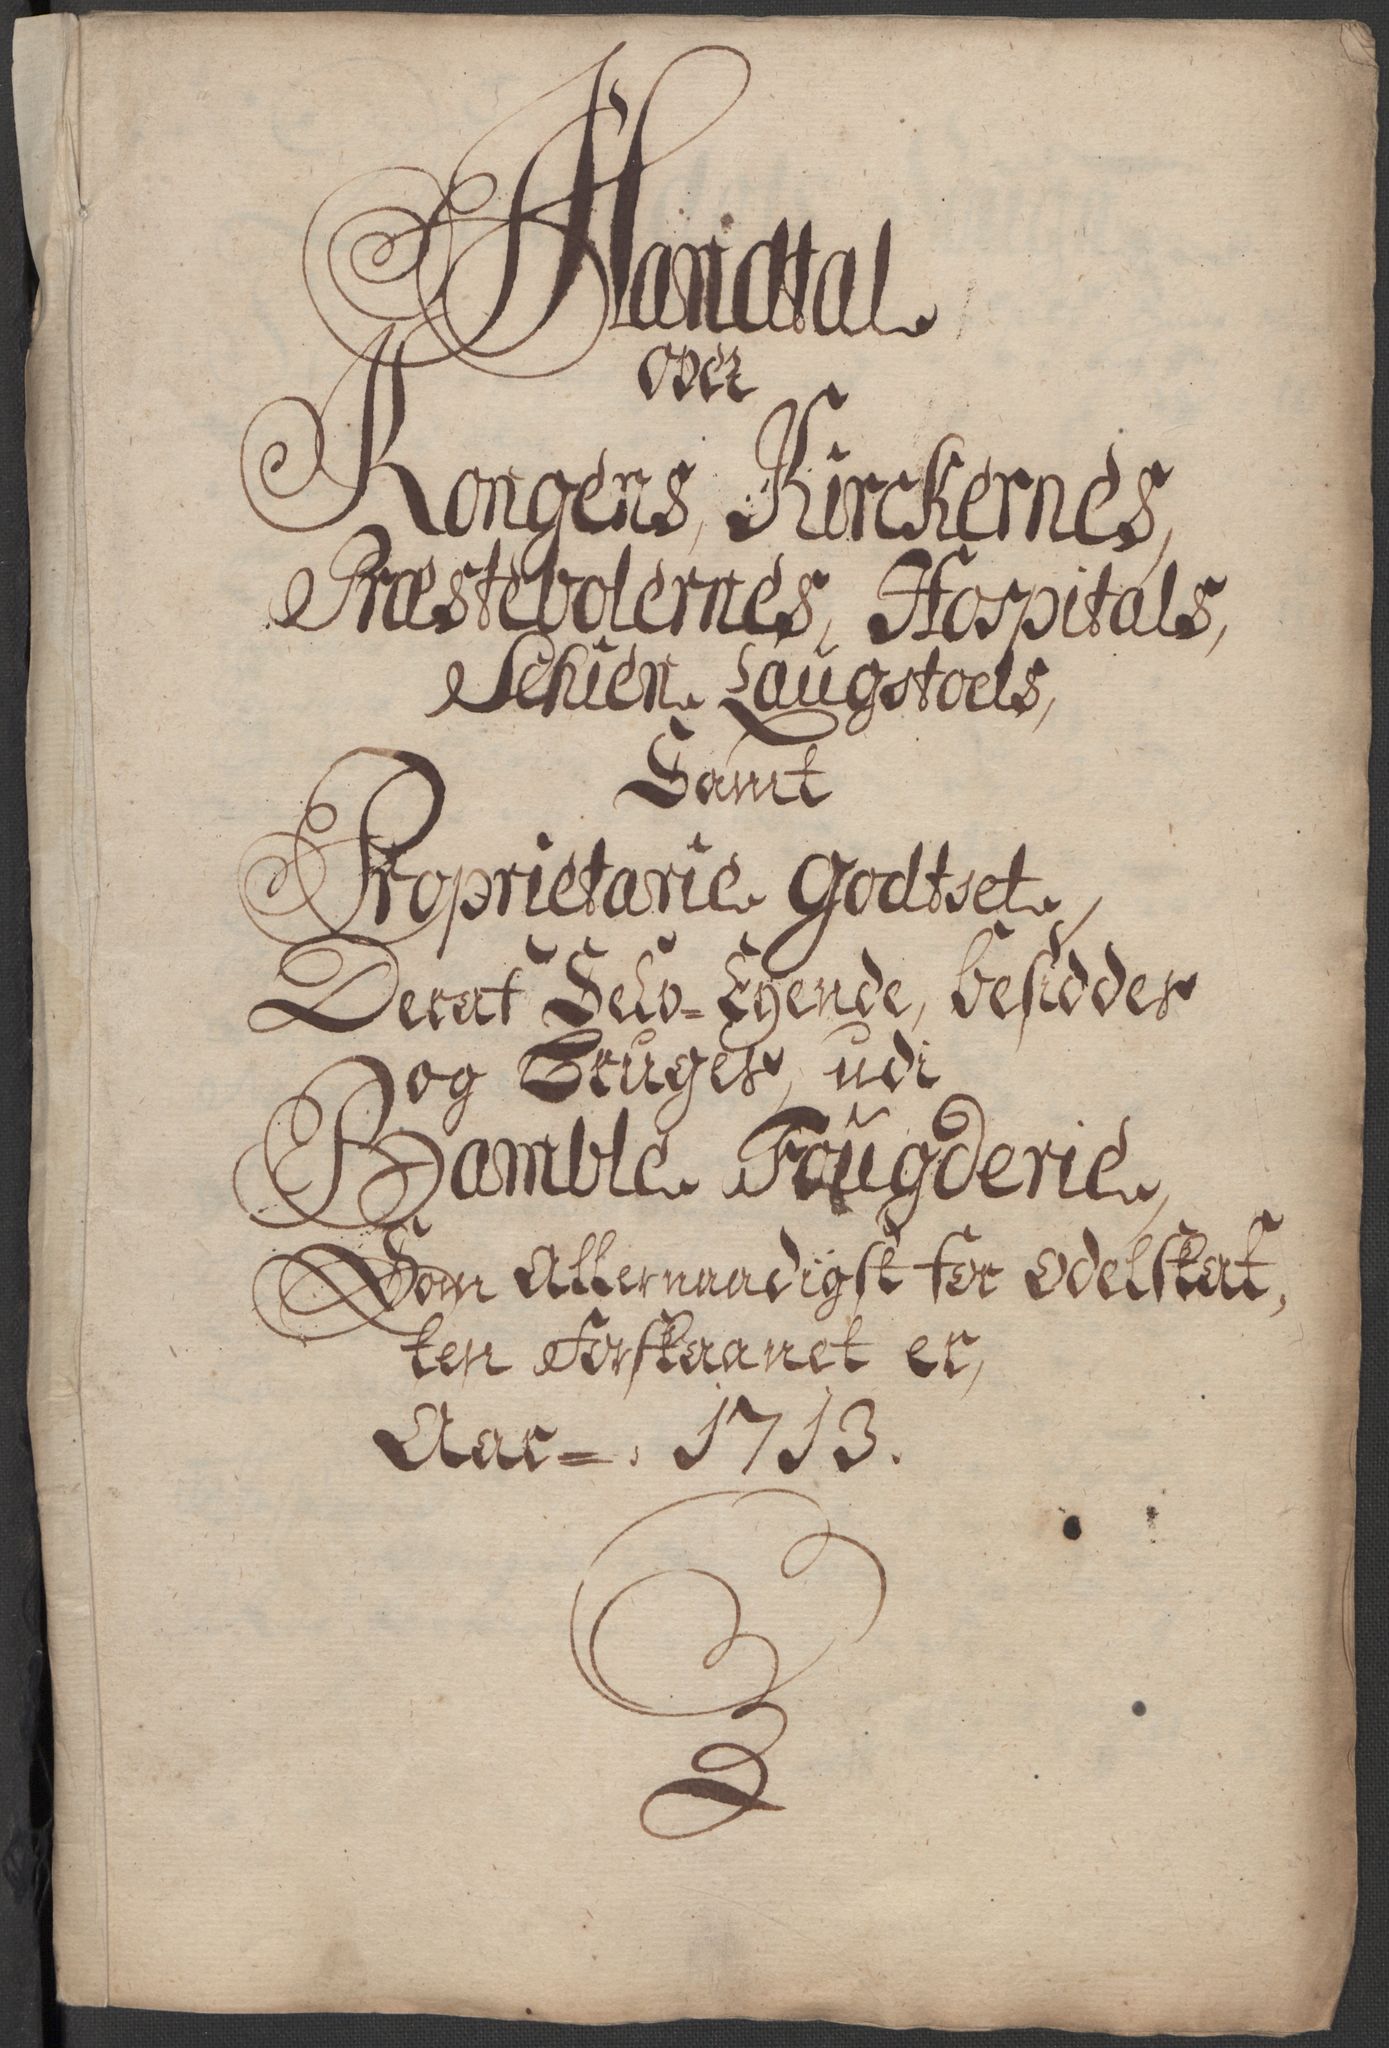 Mandtal
over
Kongens, Kirckernes,
Præstebolernes, Hospitals,
Schien Laugstoels,
Samt
Proprietarie godtset,
Deraf Selv=Eyende, besidder
og Bruger, udi
Bamble Fougderie,
Som Allernaadigst for Odelskat,
ten Forskaanet er,
Aar=. 1713.